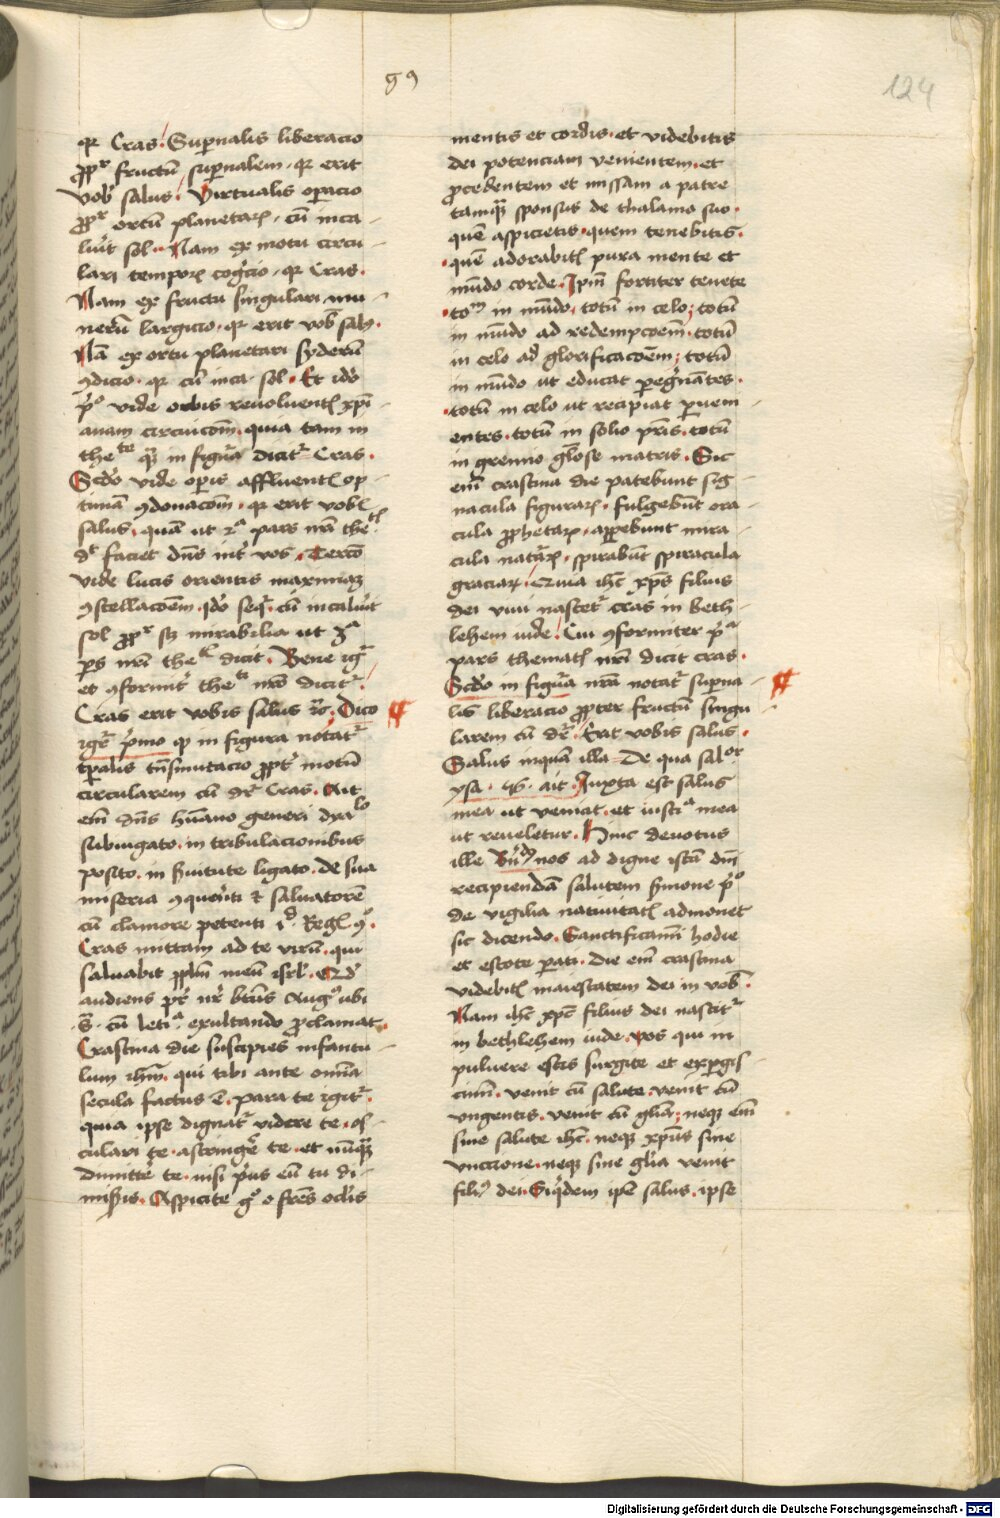 99
124
qr Cras. Supernalis liberacio
ppr fructū supernalem. qr erit
vob salus. Virtualis opacio
ppr ortum planetarꝝ. cū inca-
luit sol. Nam ex motu circu-
lari temporꝝ cogcio. qr Cras.
Nam ex fructu singulari mu-
nerū largicio. qr erit vob salꝰ.
Nā ex ortu planetari syderū
ꝯdicio. qr cū inca. sol. Et ido
po vide orbis revoluentꝭ xpi
anam circuicōm. quia tam in
the qꝫ in figura dicitr Cras.
Scdo vide opis affluentꝭ op-
timā ꝯdonacōm. qr erit vobꝭ
salus, quā ut 2a pars nri the
dt faciet dns int vos. Tercō
vide lucis orientis maximaꝫ
ꝯstellacoēm. ido seqr. cū incaluit
sol ppr sꝫ mirabilia ut 3a
ps nri the dicit. Bene igr
et ꝯformit the nro dicitr.
Cras erit vobis salus rc. Dico
igr primo qꝫ in figura notatr
tpalis tnsmutacio pptr motū
circularem cū dr Cras. Ait
em dns hūano generi dyalo
subiugato. in tribulacionibus
posito. in servitute ligato. de sua
miseria ꝯquerenti et salvatorē
cū clamore petenti i Regꝭ 9o.
Cras mittam ad te virū. qui
salvabit pplm meū isrl. Qd
audiens pr nr btus Augꝰ ubi
s. cū leticia exultando pclamat.
Crastina die suscipies infantu-
lum ihm. qui tibi ante omia
secula factus ē. para te igitr.
quia ipse dignatr videre te. os-
culari te. astringe te. et nūqꝫ
dimitte te. nisi pus eū tu di-
miseris. Aspicite go o fres oclis
mentis et cordis. et videbitis
dei potenciam venientem. et
pcedentem et missam a patre
tamqꝫ sponsus de thalamo suo.
quē aspicietis. quem tenebitis.
quē adorabitꝭ pura mente et
mūdo corde. Ipm fortiter tenete
totm in mūdo. totū in celo; totū
in mūdo ad redempcoēm. totū
in celo ad glorificacoēm; totū
in mūdo ut educat pegrinātes.
totū in celo ut recipiat pvem-
entes. totū in solio pris. totū
in gremio glose matris. Sic
em crastina die patebunt sig-
nacula figurarꝝ. fulgebūt ora-
cula pphetarꝝ. apparebunt mira-
cula naturarꝝ. spirabūt spiracula
graciarꝝ. Quia ihc xps filius
dei vivi nascetr cras in beth-
lehem iude. Cui ꝯformiter pa
pars thematꝭ nri dicit cras.
Scdo in figura nra notatr supna-
lis liberacio ppter fructū singu-
larem cū dr. Erit vobis salus.
Salus inquā illa. De qua salor
ysa. 56. ait. Iuxta est salus
mea ut veniat. et iusticia mea
ut reveletur. Hinc devotus
ille bndꝰ nos ad digne istā dni
recipiendā salutem smone po
de vigilia nativitatꝭ admonet
sic dicendo. Sanctificamī hodie
et estote parati. die em crastina
videbitꝭ maiestatem dei in vob.
Nam ihc xpc filius dei nascitr
in bethlehem iude. vos qui in
pulvere estis surgite et expgis-
cimī. venit cū salute. venit cū
ungentis. venit cū glia; neqꝫ em
sine salute ihc. neqꝫ xpus sine
unccione. neqꝫ sine glia venit
filꝰ dei. Siqdem ipe salus. ipse
Digitalisierung gefördert durch die Deutsche Forschungsgemeinschaft - DFG